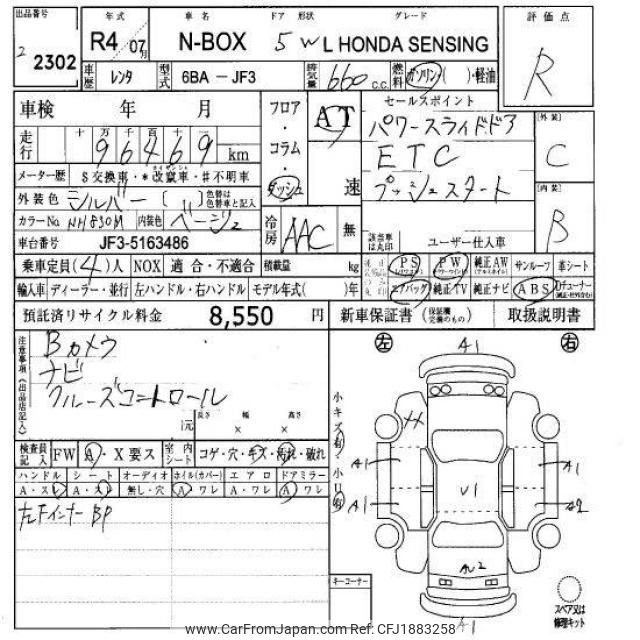 出品番号 年式 車名 ドア 形状 グレード 評価点
2 2302 R4 年 07月 N-BOX 5 W L HONDA SENSING R
車歴 レンタ 型式 6BA － JF3 排気量 660 c.c. 燃料 ガソリン( )・軽油
車検 年 月 フロア・コラム・ダッシュ AT 速 セールスポイント
パワースライドドア
ETC
プッシュスタート
[外装] C
[内装] B
走行 十 万 千 百 十 一
9 6 4 6 9 km
メーター歴 $交換車・*改竄車・#不明車
外装色 シルバー ( ) 色替は色替車と記入
カラーNo NH830M 内装色 ベージュ 冷房 AAC 無 該当車は丸印 ユーザー仕入車
車台番号 JF3-5163486
乗車定員(4)人 NOX 適合・不適合 積載量 kg PS PW 純正AW サンルーフ 革シート
輸入車 ディーラー・並行 左ハンドル・右ハンドル モデル年式( )年 エアバッグ 純正TV 純正ナビ ABS
預託済リサイクル料金 8,550 円 新車保証書 (保証継続交換のもの) 取扱説明書
注意事項(出品店記入)
Bカメラ
ナビ
クルーズコントロール
長さ 幅 高さ
[元 × ×
検査員記入 FW A・X要ス 室内シート コゲ・穴・キズ・汚れ・破れ
ハンドル シート オーディオ ホイル(カバー) エアロ ドアミラー
A・スレ A・スレ 無し・穴 A ワレ A・ワレ A ワレ
左Fインナー BP
左 A1 右
小キズ有・小U有
A1 A1
A1 V1 A2
AU2
A1
キーコーナー
スペア又は修理キット
www.CarFromJapan.com Ref.CFJ1883258